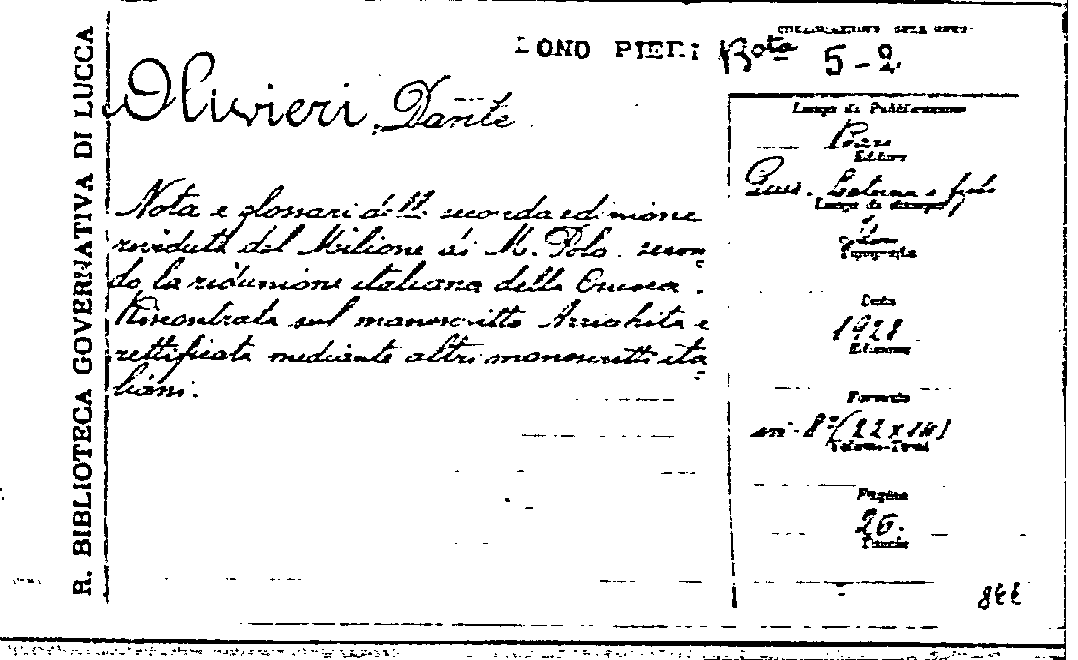 R. BIBLIOTECA GOVERNATIVA DI LUCCA
DONO PIERI Bta 5-2
Olivieri, Dante
Nota e glossari della seconda edizione
riveduta del Milione di M. Polo secon
do la riduzione italiana della Crusca.
Riscontrata sul manoscritto Arrighita e
rettificata mediante altri manoscritti ita
liani.
Luogo di Pubblicazione
Editore
Gius. Laterza e figli
Luogo di stampa
Tipografia
Data
1928
Edizione
Formato
in-8° (22x14)
Volumi-Tomi
Pagine
26.
Tavole